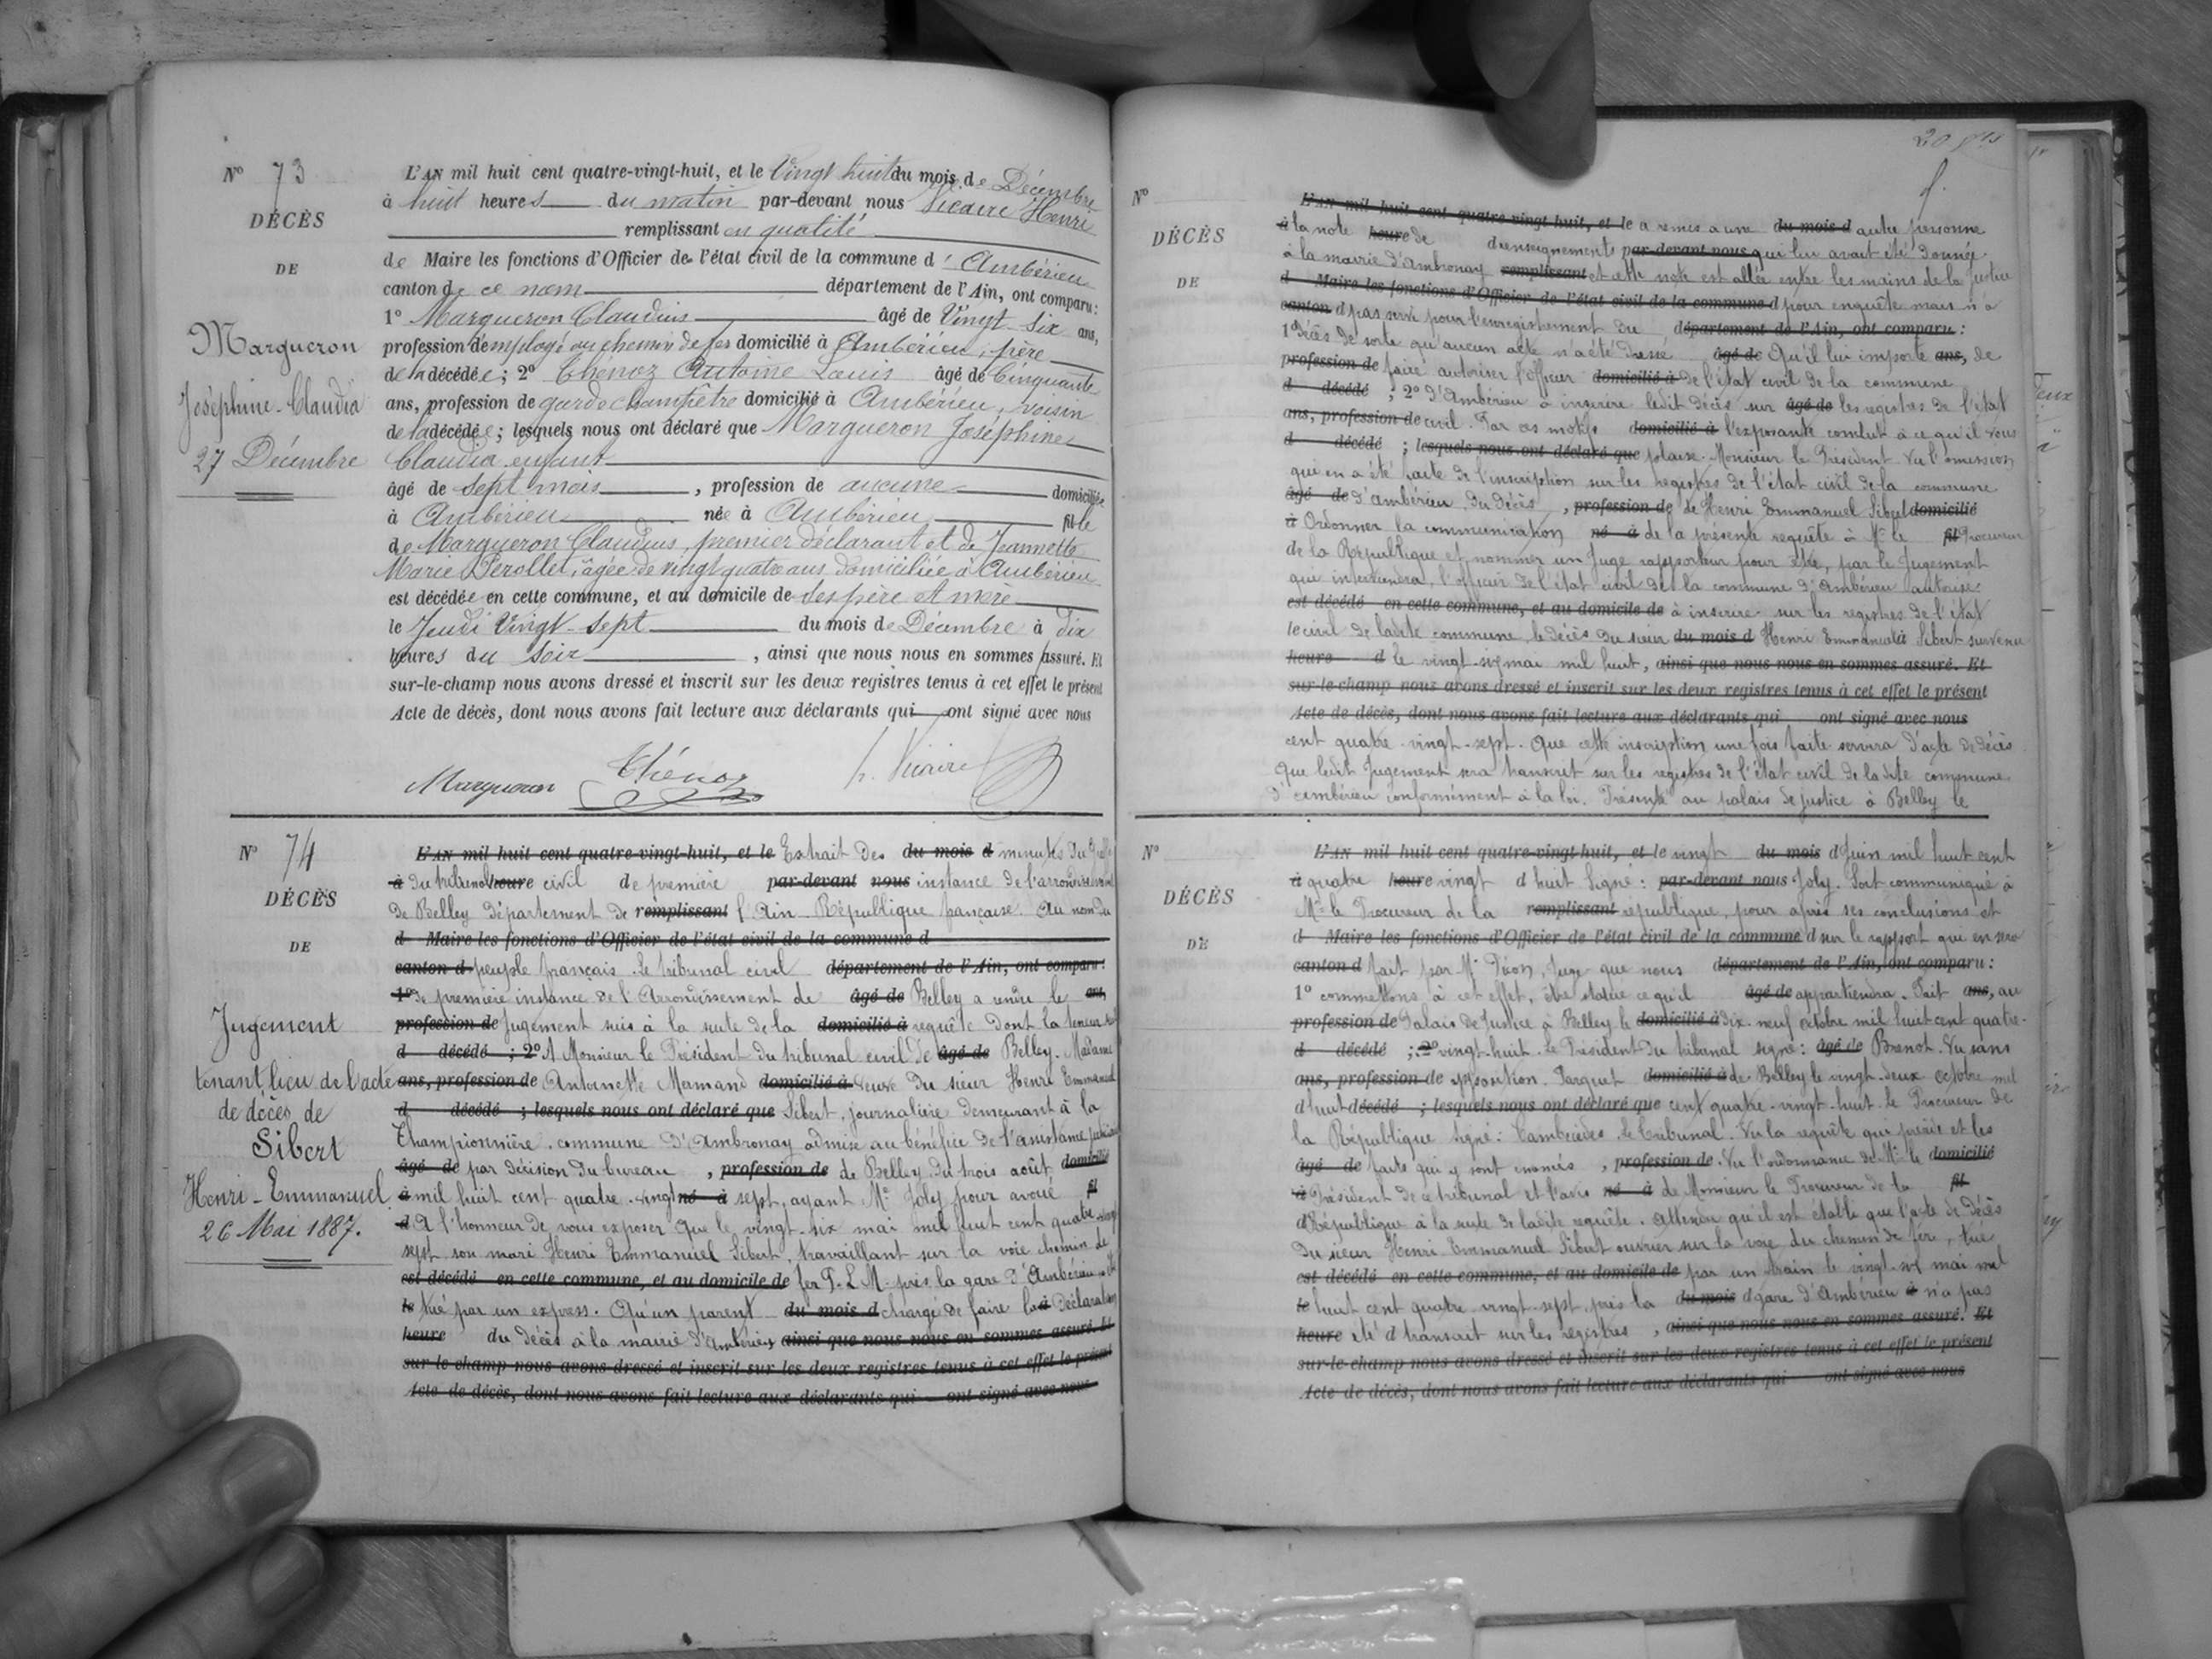 N° 73
DÉCÈS
DE
Margueron
Joséphine-Claudia
27 Décembre
L'AN mil huit cent quatre-vingt-huit, et le Vingt huit du mois de Décembre
à huit heures du matin par-devant nous Vicaire Henri
remplissant en qualité
de Maire les fonctions d'Officier de l'état civil de la commune d'Ambérieu
canton de ce nom département de l'Ain, ont comparu:
1° Margueron Claudius âgé de Vingt-Six ans,
profession d'employé au chemin de fer domicilié à Ambérieu, père
de la décédée; 2° Thénoz Antoine Louis âgé de Cinquante
ans, profession de garde champêtre domicilié à Ambérieu, voisin
de la décédée; lesquels nous ont déclaré que Margueron Joséphine
Claudia enfant
âgé de sept mois, profession de aucune domicilié
à Ambérieu née à Ambérieu fille
de Margueron Claudius, premier déclarant et de Jeannette
Marie Perollet, âgée de vingt quatre ans domiciliée à Ambérieu
est décédée en cette commune, et au domicile de ses père et mère
le Jeudi Vingt-Sept du mois de Décembre à dix
heures du Soir, ainsi que nous nous en sommes assuré. Et
sur-le-champ nous avons dressé et inscrit sur les deux registres tenus à cet effet le présent
Acte de décès, dont nous avons fait lecture aux déclarants qui ont signé avec nous
Margueron Thénoz h. Vicaire
N° 74
DÉCÈS
DE
Jugement
tenant lieu de l'acte
de décès de
Sibert
Henri-Emmanuel
26 Mai 1887.
L'AN mil huit cent quatre-vingt-huit, et le Extrait des du mois d minutes du Greffe
à du tribunal heure civil de première par-devant nous instance de l'arrondissement
de Belley département de remplissant l'Ain République française. Au nom du
d Maire les fonctions d'Officier de l'état civil de la commune d
canton d peuple français. Le tribunal civil département de l'Ain, ont comparu:
1° de première instance de l'Arrondissement de âgé de Belley a rendu le ans,
profession de Jugement suis à la suite de la domicilié à requête dont la teneur suit
d décédé ; 2° A Monsieur le Président du tribunal civil de âgé de Belley. Madame
ans, profession de Antoinette Mamand domicilié à Veuve du sieur Henri Emmanuel
d décédé ; lesquels nous ont déclaré que Sibert, journalière demeurant à la
Championnière, commune d'Ambronay admise au bénéfice de l'assistance judiciaire
âgé de par décision du bureau , profession de de Belley du trois août domicilié
à mil huit cent quatre-vingt né à sept, ayant Me Joly pour avoué fil
d A l'honneur de vous exposer que le vingt-six mai mil huit cent quatre vingt
sept son mari Henri Emmanuel Sibert, travaillant sur la voie chemin de
est décédé en cette commune, et au domicile de fer P.L.M. près la gare d'Ambérieu
le tué par un express. Qu'un parent du mois d chargé de faire la à déclaration
heure du décès à la mairie d'Ambérieu ainsi que nous nous en sommes assuré. Et
sur-le-champ nous avons dressé et inscrit sur les deux registres tenus à cet effet le présent
Acte de décès, dont nous avons fait lecture aux déclarants qui ont signé avec nous
N°
DÉCÈS
DE
L'AN mil huit cent quatre-vingt-huit, et le a remis à une du mois d autre personne
à la note heure de renseignements par-devant nous qui lui avait été donnée
à la mairie d'Ambronay remplissant et cette note est allée entre les mains de la Justice
d Maire les fonctions d'Officier de l'état civil de la commune d pour enquête mais n'a
canton d pas servi pour l'enregistrement du département de l'Ain, ont comparu:
1° décès de sorte qu'aucun acte n'a été dressé âgé de Qu'il lui importe ans, de
profession de faire autoriser l'officier domicilié à de l'état civil de la commune
d décédé ; 2° d'Ambérieu à inscrire ledit décès sur âgé de les registres de l'état
ans, profession de civil. Par ces motifs domicilié à l'exposante conclut à ce qu'il vous
d décédé ; lesquels nous ont déclaré que plaise. Monsieur le Président. Vu l'omission
qui en a été faite de l'inscription sur les registres de l'état civil de la commune
âgé de d'Ambérieu, du décès , profession de de Henri Emmanuel Sibert domicilié
à Ordonner la communication né à de la présente requête à Mr le fil Procureur
de la République et nommer un Juge rapporteur pour être, par le Jugement
qui interviendra, l'officier de l'état civil de la commune d'Ambérieu autorisé
est décédé en cette commune, et au domicile de à inscrire sur les registres de l'état
le civil de ladite commune, le décès du sieur du mois d Henri Emmanuel à Sibert survenu
heure d le vingt-six mai mil huit, ainsi que nous nous en sommes assuré. Et
sur-le-champ nous avons dressé et inscrit sur les deux registres tenus à cet effet le présent
Acte de décès, dont nous avons fait lecture aux déclarants qui ont signé avec nous
cent quatre-vingt-sept. Que cette inscription une fois faite servira d'acte de décès
Que ledit Jugement sera transcrit sur les registres de l'état civil de la dite commune
d'Ambérieu conformément à la loi. Présenté au palais de justice à Belley le
N°
DÉCÈS
DE
L'AN mil huit cent quatre-vingt-huit, et le vingt du mois d Juin mil huit cent
à quatre heure vingt d huit Signé: par-devant nous Joly. Soit communiqué à
Mr le Procureur de la remplissant république, pour après ses conclusions et
d Maire les fonctions d'Officier de l'état civil de la commune d sur le rapport qui en sera
canton d fait par Mr Juge que nous département de l'Ain, ont comparu:
1° commettons à cet effet, être statué ce qu'il âgé de appartiendra. Fait ans, au
profession de Palais de Justice à Belley le domicilié à dix-neuf octobre mil huit cent quatre-
d décédé ; 2° vingt-huit. Le Président du tribunal signé: âgé de Brenot. Vu sans
ans, profession de opposition. Parquet domicilié à de Belley le vingt-deux octobre mil
d huit décédé ; lesquels nous ont déclaré que cent quatre-vingt-huit le Procureur de
la République signé: Le tribunal. Vu la requête qui précède et les
âgé de faits qui y sont énoncés , profession de. Vu l'ordonnance de Mr le domicilié
à Président de ce tribunal et l'avis né à de Monsieur le Procureur de la fil
d République à la suite de ladite requête. Attendu qu'il est établi que l'acte de décès
du sieur Henri Emmanuel Sibert ouvrier sur la voie du chemin de fer, tué
est décédé en cette commune, et au domicile de par un train le vingt-six mai mil
le huit cent quatre-vingt-sept, près la du mois d gare d'Ambérieu à n'a pas
heure été d transcrit sur les registres , ainsi que nous nous en sommes assuré. Et
sur-le-champ nous avons dressé et inscrit sur les deux registres tenus à cet effet le présent
Acte de décès, dont nous avons fait lecture aux déclarants qui ont signé avec nous